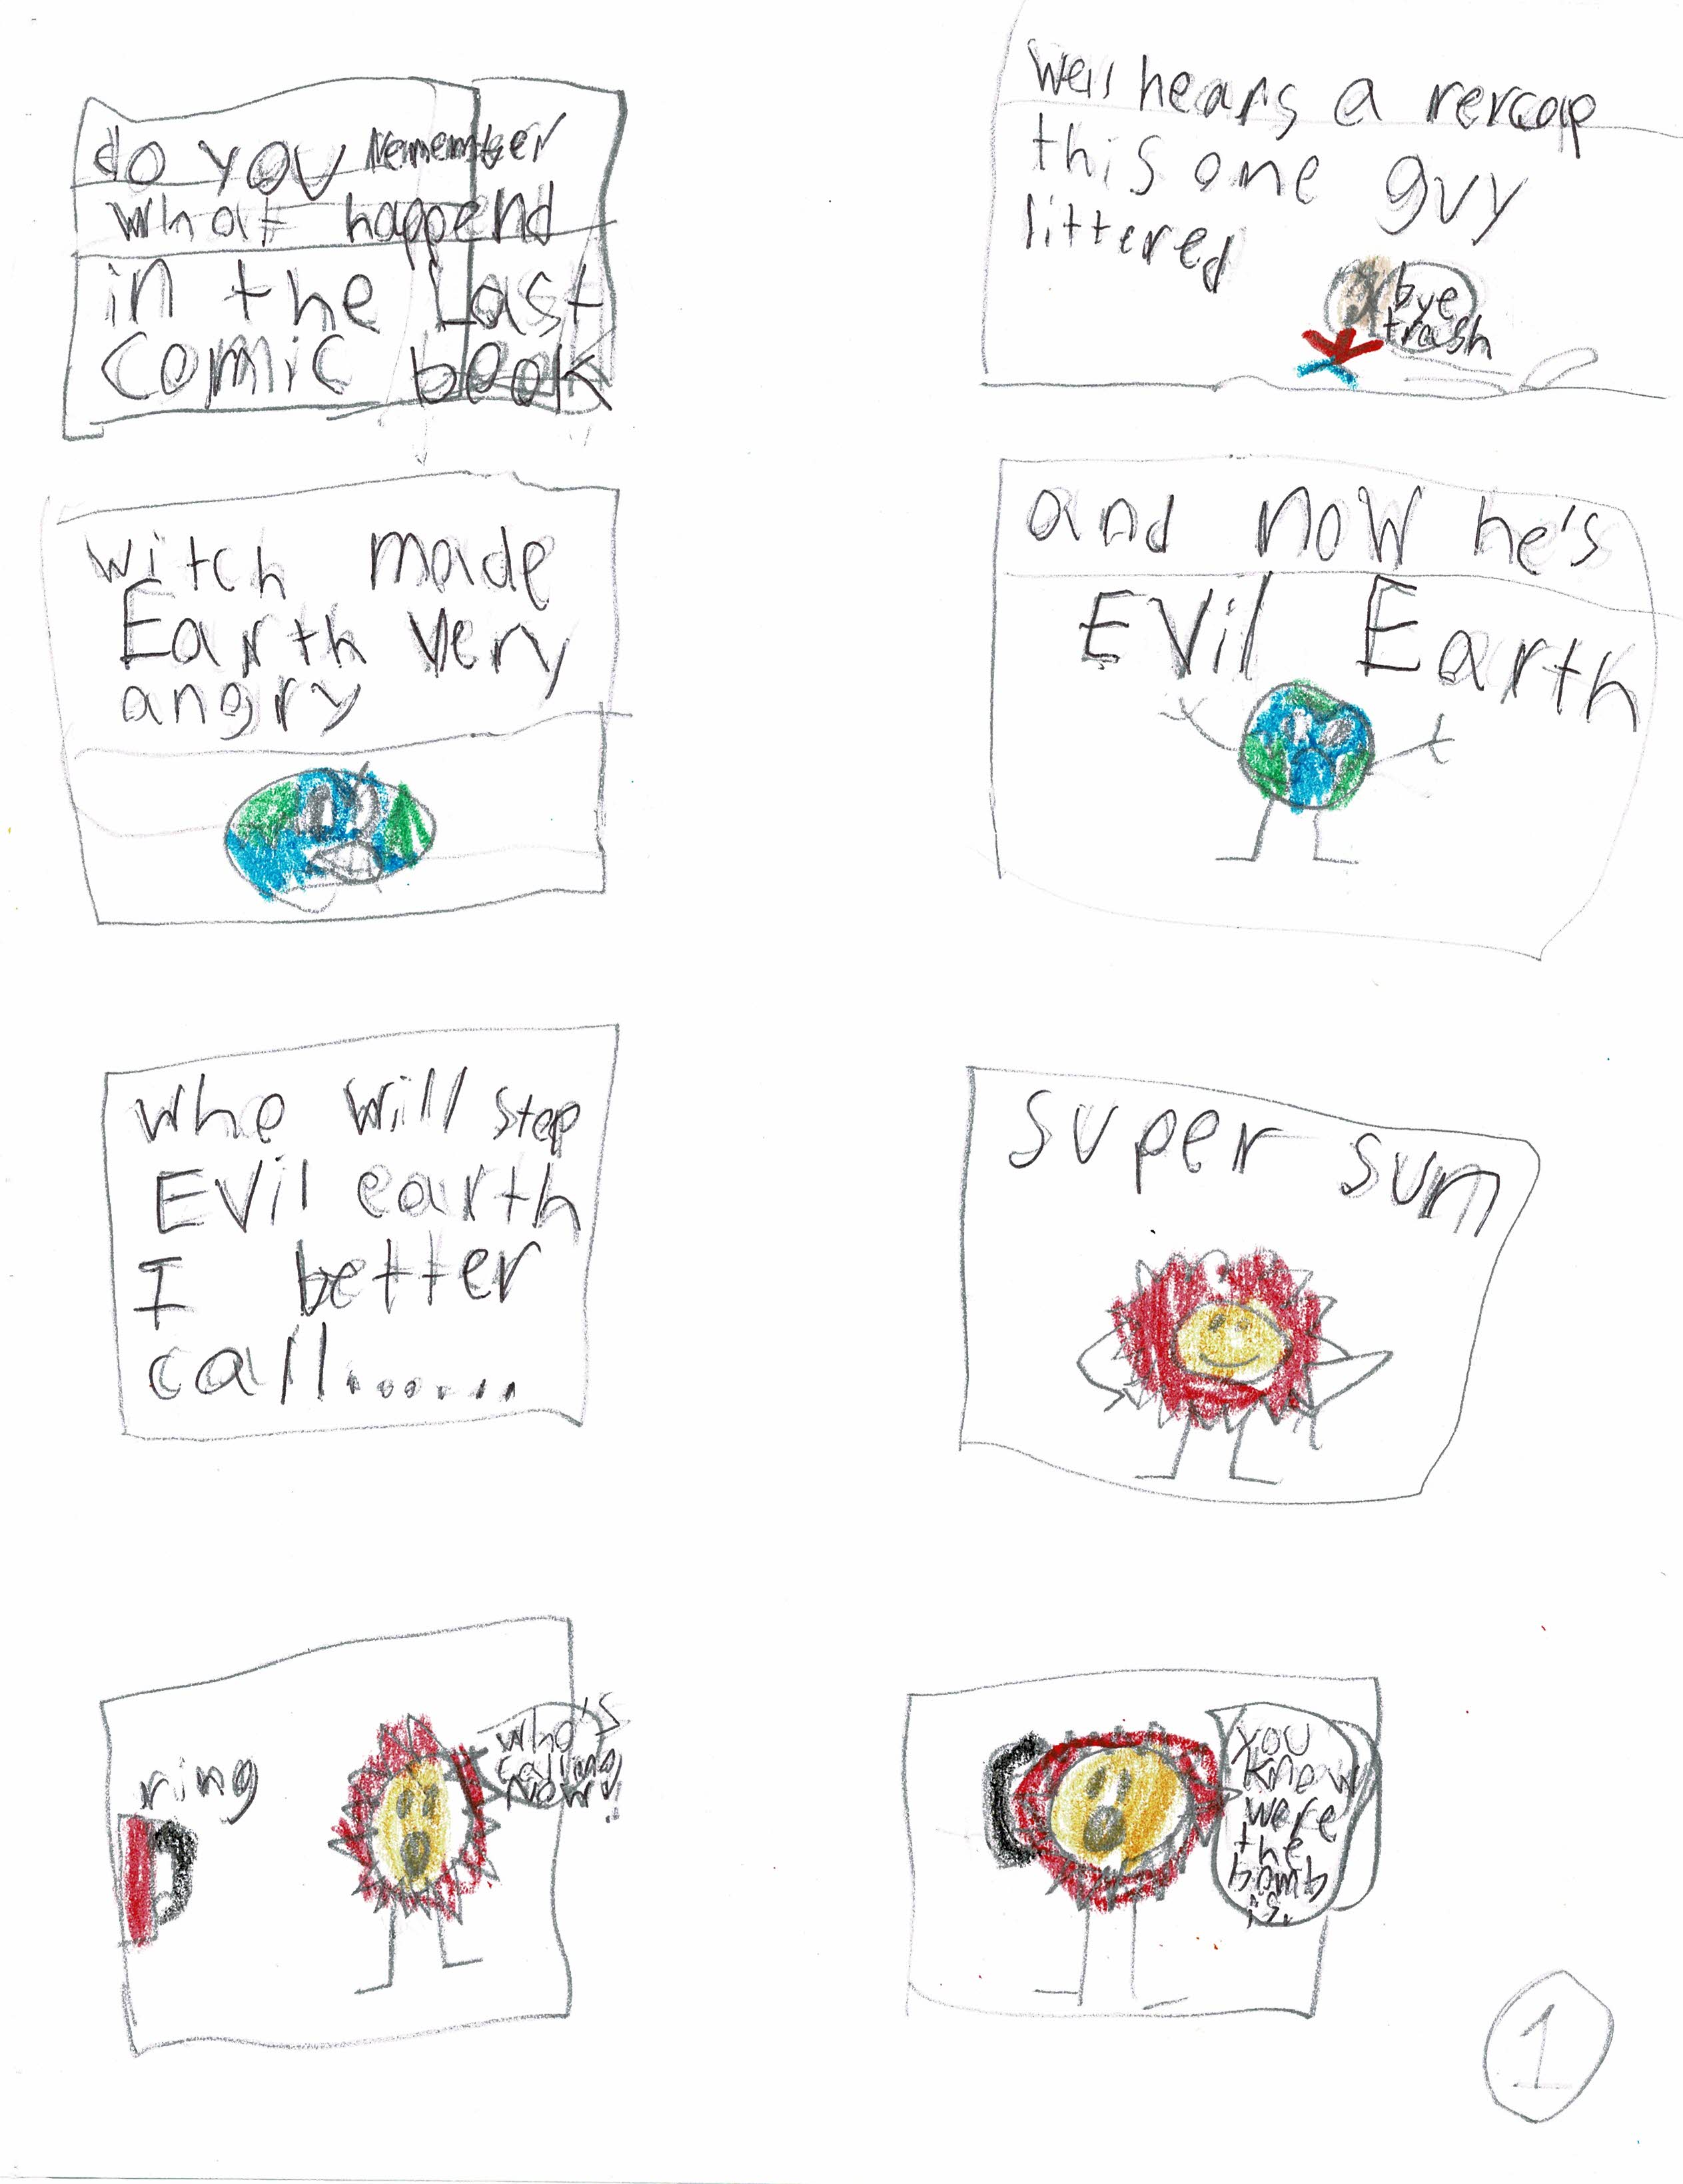 do you remember
what happend
in the Last
comic book
Well hears a rercap
this one guy
littered
bye
trash
witch made
Earth very
angry
and now he's
EVil Earth
who will stop
EVil earth
I better
call.......
super sun
ring
who's
calling
now!
you
know
were
the
bomb
is.
1